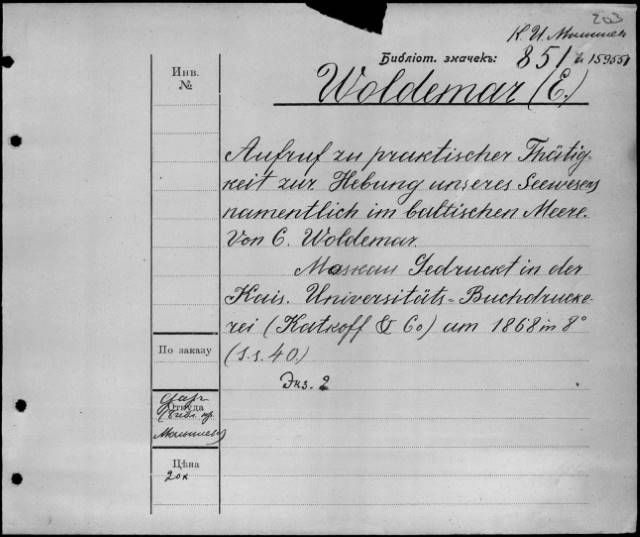 203
К. И.
Библіот. значекъ: 851
Инв.
№
Woldemar (E.)
Aufruf zu praktischer Thätig-
keit zur Hebung unseres Seewesens
namentlich im baltischen Meere.
Von C. Woldemar.
Moskau Gedruckt in der
Kais. Universitäts-Buchdrucke-
rei (Katkoff & Co) am 1868 in 8°
По заказу
(S.s. 40.)
Экз. 2
Откуда
Цѣна
20к